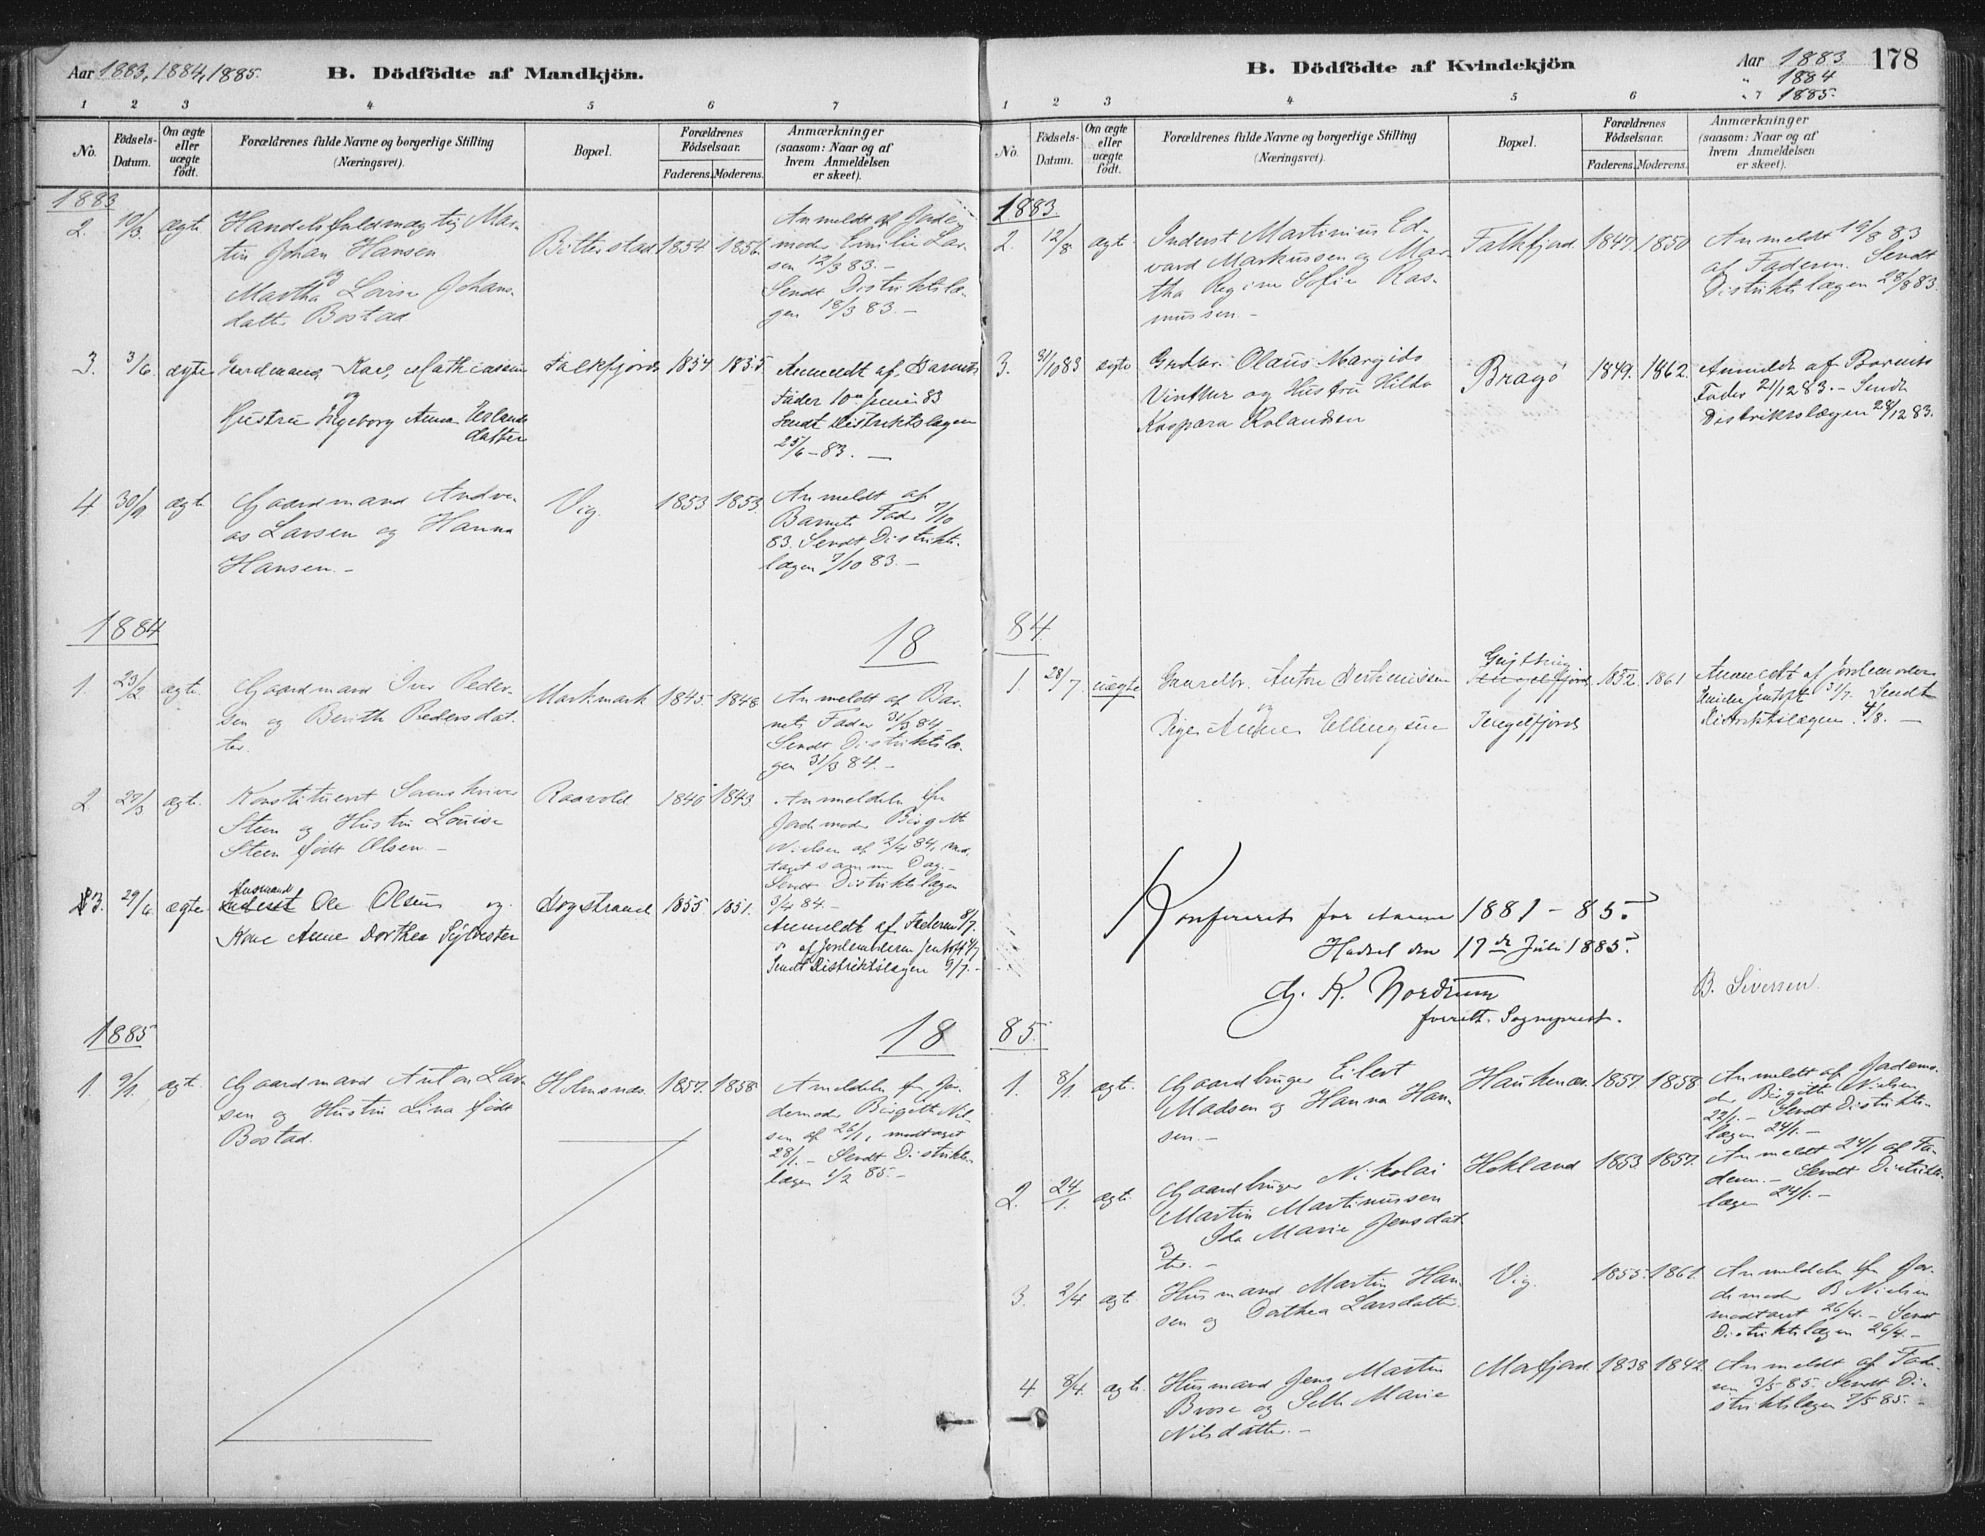 Aar 1883, 1884, 1885.
B. Dödfödte af Mandkjön.
1 2 3 4 5 6 7
No.
Födsels-
Datum.
Om ægte
eller
uægte
födt.
Forældrenes fulde Navne og borgerlige Stilling
(Næringsvei).
Bopæl.
Forældrenes
Födselsaar.
Faderens. Moderens.
Anmærkninger
(saasom: Naar og af
hvem Anmeldelsen
er skeet).
1883
2. ægte Handelsfuldmægtig Mar-
tin Johan Hansen
og
Martha Lovise Johans-
datter Bostad
Bitterstad 1854. 1856.
Anmeldt af Jorde-
moder Emilie Lar-
sen 12/3 83.-
Sendt Distriktslæ-
gen 18/3 83.-
3. 3/6 ægte Gaardmand Karl Mathiassen
og
Hustru Ingeborg Anna Erlands
datter
Falkfjord 1854 1835
Anmeldt af Barnets
Fader 10de Juni 83
Sendt Distriktslægen
25/6-83.-
4 30/9 ægte Gaardmand Andre-
as Larsen og Hanna
Hansen.-
Vig. 1853 1853
Anmeldt af
Barnets Fader 7/10
83. Sendt Distrikts-
lægen 7/10 83.-
1884
18
1. 23/2 ægte Gaardmand Iver Peder-
sen og Berith Pedersdat-
ter.
Markmark 1845. 1848
Anmeldt af Bar-
nets Fader 31/3 84.
Sendt Distriktslæ-
gen 31/3 84.-
2 27/3 ægte. Konstitueret Sorenskriver
Steen og Hustru Louise
Steen födt Olsen.-
1846 1843
Anmeldelse fra
Jordemoder Birgitte
Nielsen af 2/4 84, mod-
taget samme Dag.-
Sendt Distriktslægen
3/4 84.-
3. 29/6 ægte Husmand
Inderst Ole Olsen og
Kone Anne Dorthea Sylvester
Dogstrand 1855 1851.
Anmeldt af Faderen 8/7.
o af Jordemoderen Jentoft 4/7
Sendt Distriktslægen 9/7.-
1885
18
1. 9/1. ægte. Gaardmand Anton Lar-
sen og Hustru Lina födt
Bostad.
Holmsnæs. 1857. 1858
Anmeldelse fra Jor-
demoder Birgitte Niel-
sen af 26/1, modtaget
28/1.- Sendt Distrikts-
lægen 1/2 85.-
B. Dödfödte af Kvindekjön
Aar 1883
" 1884
" 1885.
178
1 2 3 4 5 6 7
No.
Födsels-
Datum.
Om ægte
eller
uægte
födt.
Forældrenes fulde Navne og borgerlige Stilling
(Næringsvei).
Bopæl.
Forældrenes
Födselsaar.
Faderens. Moderens.
Anmærkninger
(saasom: Naar og af
hvem Anmeldelsen
er skeet).
1883
2. 12/8 ægte Inderst Martinius Ed-
vard Markussen og Mar-
tha Regine Sofie Ras-
mussen-
Falkfjord 1847. 1850
Anmeldt 19/8 83
af Faderen. Sendt
Distriktslægen 28/8 83.
3. 31/10 83 ægte Gaardbr. Olaus Margido
Vinther og Hustru Hilda
Kaspara Rolandsen
Bragö 1849. 1862.
Anmeldt af Barnets
Fader 21/12 83.- Sendt
Distriktslægen 28/12 83.
84
1. 28/7 uægte Gaardbr. Anton
og
Pige Anne Ellingsen
1852. 1861
Anmeldt af Jordemoder
Jentoft 31/7. Sendt
Distriktslægen 4/8.-
Konfereret for Aarene 1881-85.
Hadsel den 17de Juli 1885.
G. K. Nordrum
forrett. Sogneprest.
B. Sivertsen
85.
1. 8/1. ægte. Gaardbruger Eilert
Madsen og Hanna Han-
sen.-
Haukenæs. 1857. 1858.
Anmeldt af Jordemo-
der Birgitte Nielsen
22/1.- Sendt Distrikts-
lægen 24/1.-
2. 24/1. ægte. Gaardbruger Nikolai
Martin Martinussen
og Ida Marie Jensdat-
ter.-
Hokland 1853. 1857.
Anmeldt 24/1 af Fa-
deren.- Sendt Distrikts-
lægen 24/1.-
3. 2/4 ægte. Husmand Martin Han-
sen og Dorthea Larsdatter.
Vig. 1855. 1861.
Anmeldelse fra Jor-
demoder B. Nielsen
modtaget 26/4.- Sendt
Distriktslægen 26/4.-
4 8/4. ægte. Husmand Jens Martin
Brose og Marie
Nilsdatter.-
Morfjord. 1838 1842.
Anmeldt af Fade-
ren 7/5 85. Sendt Di-
striktslægen 7/5 85.-